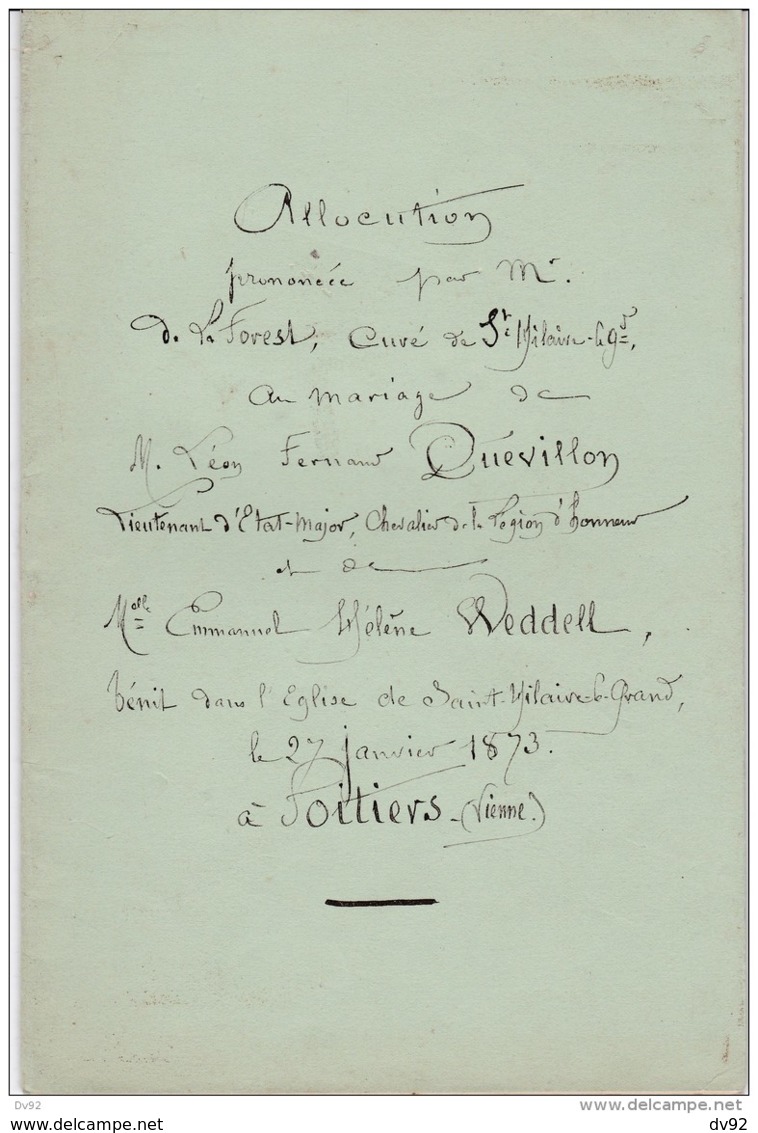 Allocution
prononcée par Mr.
De La Forest, Curé de St. Hilaire-le-Gd,
Au mariage de
M. Léon Fernand Quevillon
Lieutenant d'Etat-Major, Chevalier de la Légion d'honneur
et de
Melle Emmanuel Hélène Weddell,
bénit dans l'Eglise de Saint-Hilaire-le-Grand,
le 27 janvier 1873.
à Poitiers - (Vienne.)
Dv92
delcampe.net
dv92